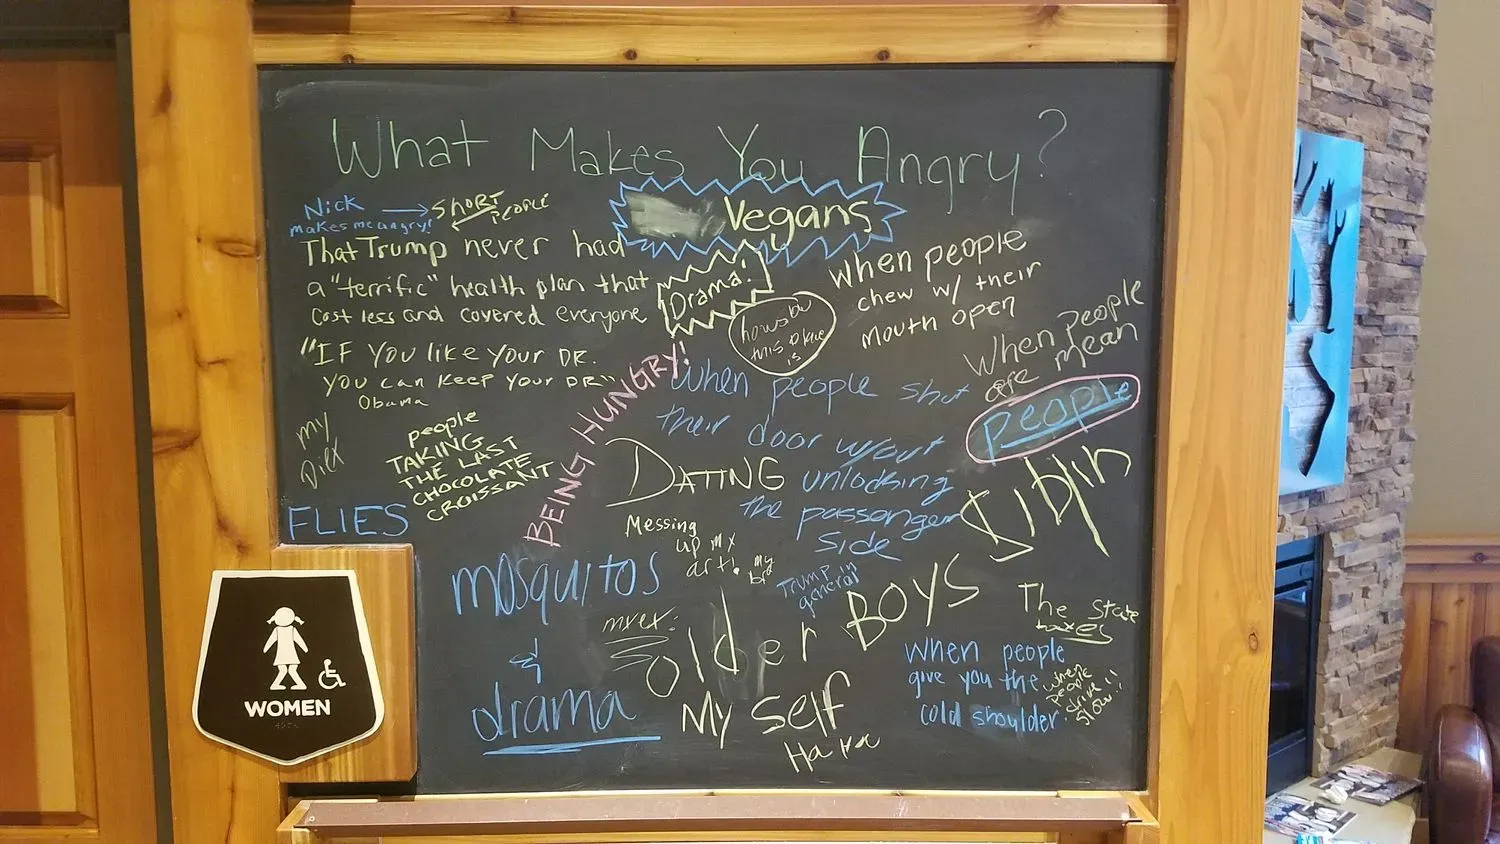 What Makes You Angry?
Nick
makes me angry!
SHORT
People
Vegans
That Trump never had
a "terrific" health plan that
cost less and covered everyone
Drama!
"IF You like Your DR.
You can keep Your DR"
Obama
when people
chew w/ their
mouth open
When People
are mean
people
BEING HUNGRY!
when people shut
their door w/out
unlocking
the passenger
side
my
Diet
people
TAKING
THE LAST
CHOCOLATE
CROISSANT
FLIES
DATING
Messing
up my
art!
my
Siblin
mosquitos
&
drama
Trump in
general
my ex:
older BOYS
My self
Ha Ha
The State
taxes
when people
give you the
cold shoulder.
when
people
drive
slow!!
WOMEN